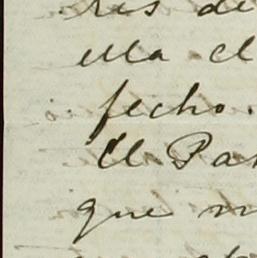 res de
ella el
fecho.
El Pa
que m